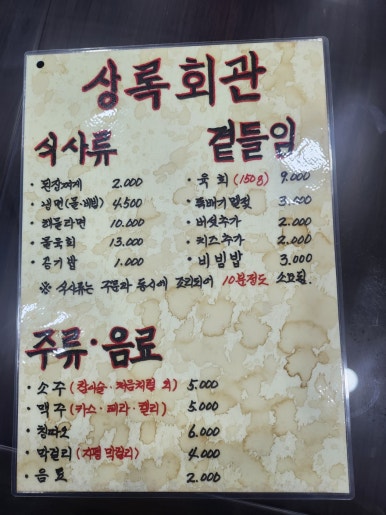 상록회관
식사류
· 된장찌개 2.000
· 냉면(물·비빔) 4.500
· 해물라면 10.000
· 물육회 13.000
· 공기밥 1.000
곁들임
· 육회 (150g) 9.000
· 뚝배기 계란찜 3.000
· 버섯추가 2.000
· 치즈추가 2.000
· 비빔밥 3.000
※ 식사류는 주문과 동시에 조리되어 10분정도 소요됨.
주류·음료
· 소주 (참이슬·처음처럼 외) 5.000
· 맥주 (카스·테라·켈리) 5.000
· 칭따오 6.000
· 막걸리 (지평 막걸리) 4.000
· 음료 2.000